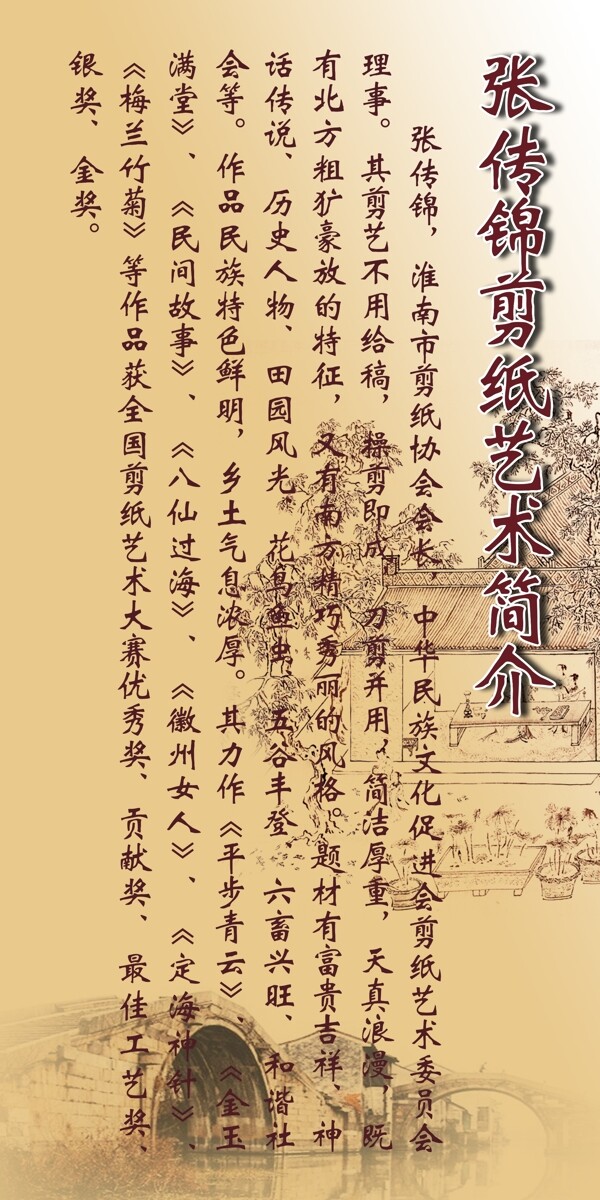 张传锦剪纸艺术简介
张传锦，淮南市剪纸协会会长，中华民族文化促进会剪纸艺术委员会
理事。其剪艺不用给稿，操剪即成，刀剪并用，简洁厚重，天真浪漫，既
有北方粗犷豪放的特征，又有南方精巧秀丽的风格。题材有富贵吉祥、神
话传说、历史人物、田园风光、花鸟鱼虫、五谷丰登、六畜兴旺、和谐社
会等。作品民族特色鲜明，乡土气息浓厚。其力作《平步青云》、《金玉
满堂》、《民间故事》、《八仙过海》、《徽州女人》、《定海神针》、
《梅兰竹菊》等作品获全国剪纸艺术大赛优秀奖、贡献奖、最佳工艺奖、
银奖、金奖。